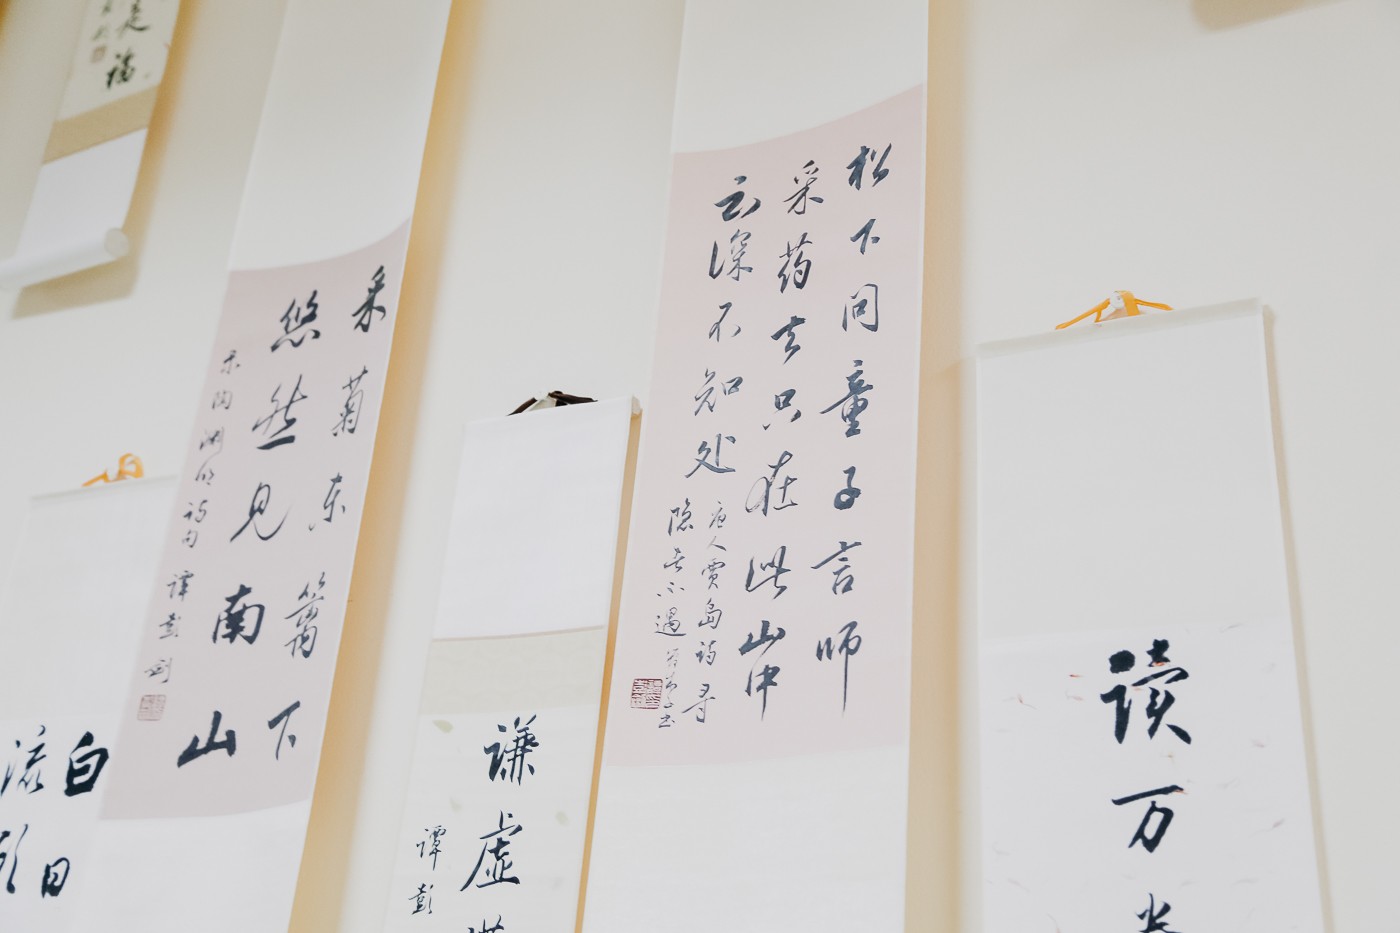 松下问童子言师
采药去只在此山中
云深不知处
唐人贾岛诗寻
隐者不遇
采菊东篱下
悠然见南山
录陶渊明诗句 谭彭
读万卷
谦虚
谭彭
白日
流
福